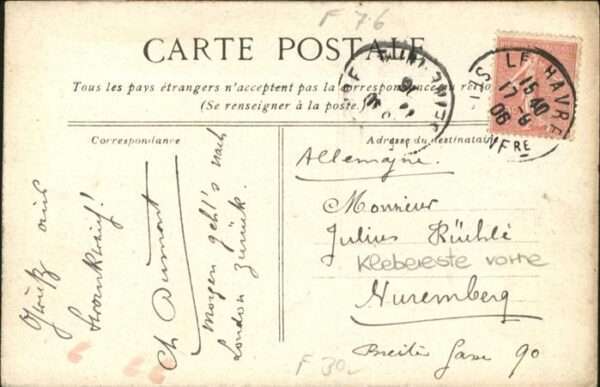 F 7.6
CARTE POSTALE
Tous les pays étrangers n'acceptent pas la correspondance au recto
(Se renseigner à la poste.)
Correspondance
Adresse du destinataire
LE HAVRE
15 40
17 8
06
Gruß aus
Frankreich!
Ch Dumont
Morgen geht's nach
London zurück.
Allemagne.
Monsieur
Julius Rühlé
Klebereste vorne
Nuremberg
Breite Gasse 90
F 30.-